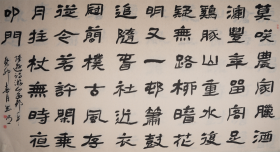 莫咲農家臘酒
渾豐年留客足
鷄豚山重水複
疑無路柳暗花
明又一邨簫鼓
追隨春社近衣
冠簡樸古風存
從今若許閑乘
月拄杖無時夜
叩門
陸遊詩遊山西邨
癸卯春月